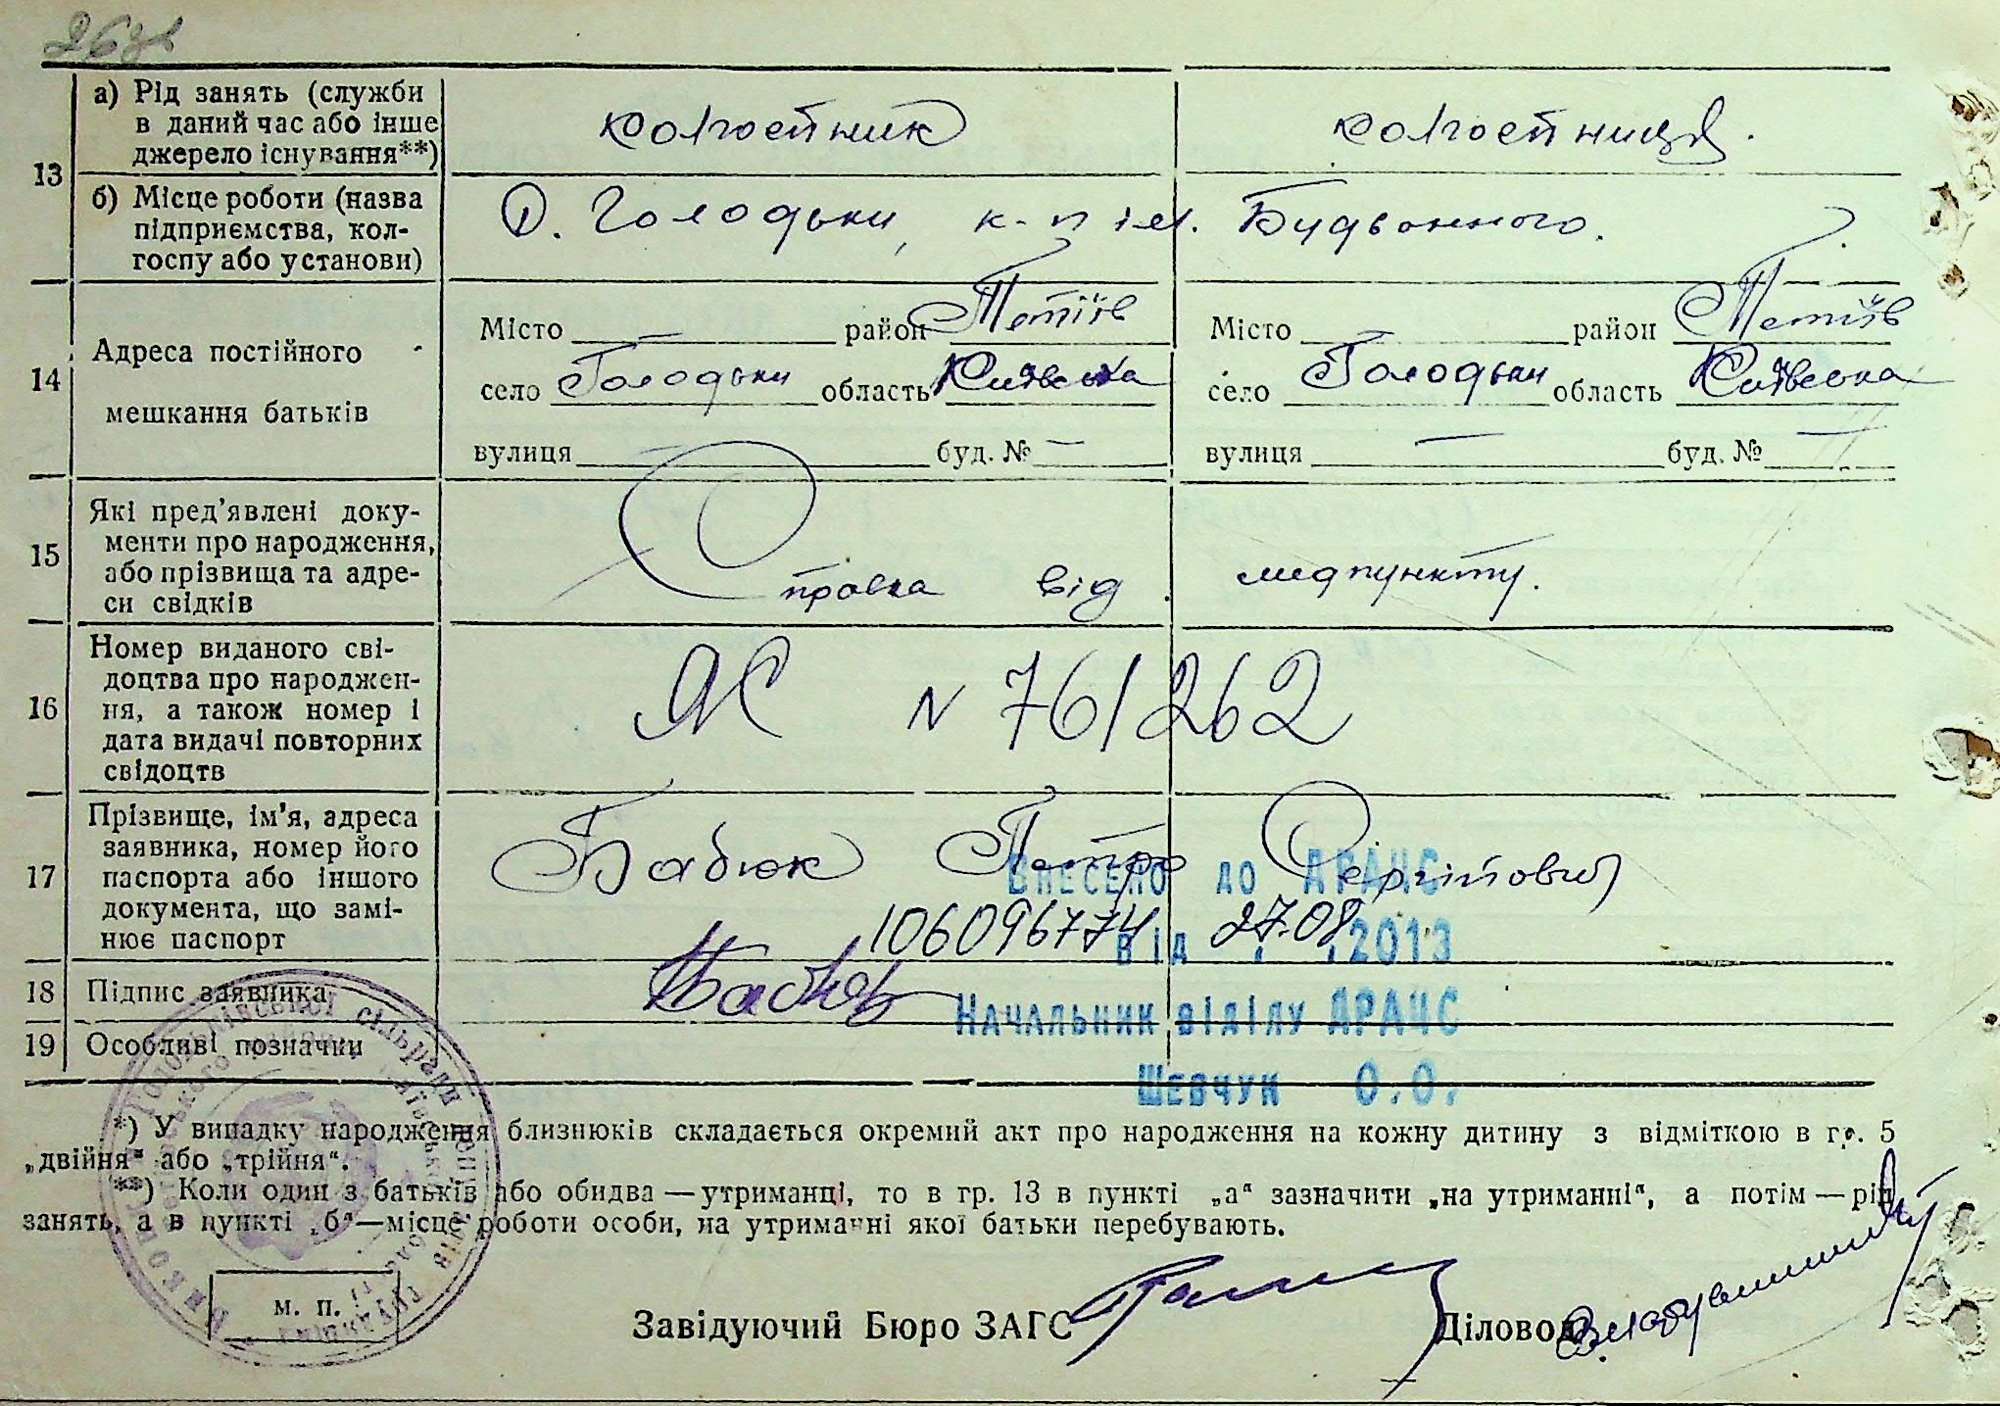 26зв
13
а) Рід занять (служби
в даний час або інше
джерело існування**)
колгоспник
колгоспниця.
б) Місце роботи (назва
підприємства, кол-
госпу або установи)
с. Голодьки, к-п ім. Будьонного.
14
Адреса постійного
мешкання батьків
Місто — район Тетіїв
село Голодьки область Київська
вулиця — буд. № —
Місто район Тетіїв
село Голодьки область Київська
вулиця — буд. № —
15
Які пред’явлені доку-
менти про народження,
або прізвища та адре-
си свідків
Справка від медпункту.
16
Номер виданого сві-
доцтва про народжен-
ня, а також номер і
дата видачі повторних
свідоцтв
ЯС N 761262
17
Прізвище, ім’я, адреса
заявника, номер його
паспорта або іншого
документа, що замі-
нює паспорт
Бабюк Петро
Внесено до ДРАЦС
106096774 27.08
від . .2013
18
Підпис заявника
Начальник відділу ДРАЦС
19
Особливі позначки
Шевчук О.О.
*) У випадку народження близнюків складається окремий акт про народження на кожну дитину з відміткою в гр. 5
„двійня“ або „трійня“.
**) Коли один з батьків або обидва — утриманці, то в гр. 13 в пункті „а“ зазначити „на утриманні“, а потім — рід
занять, а в пункті „б“—місце роботи особи, на утриманні якої батьки перебувають.
м. п.
Завідуючий Бюро ЗАГС
Діловод